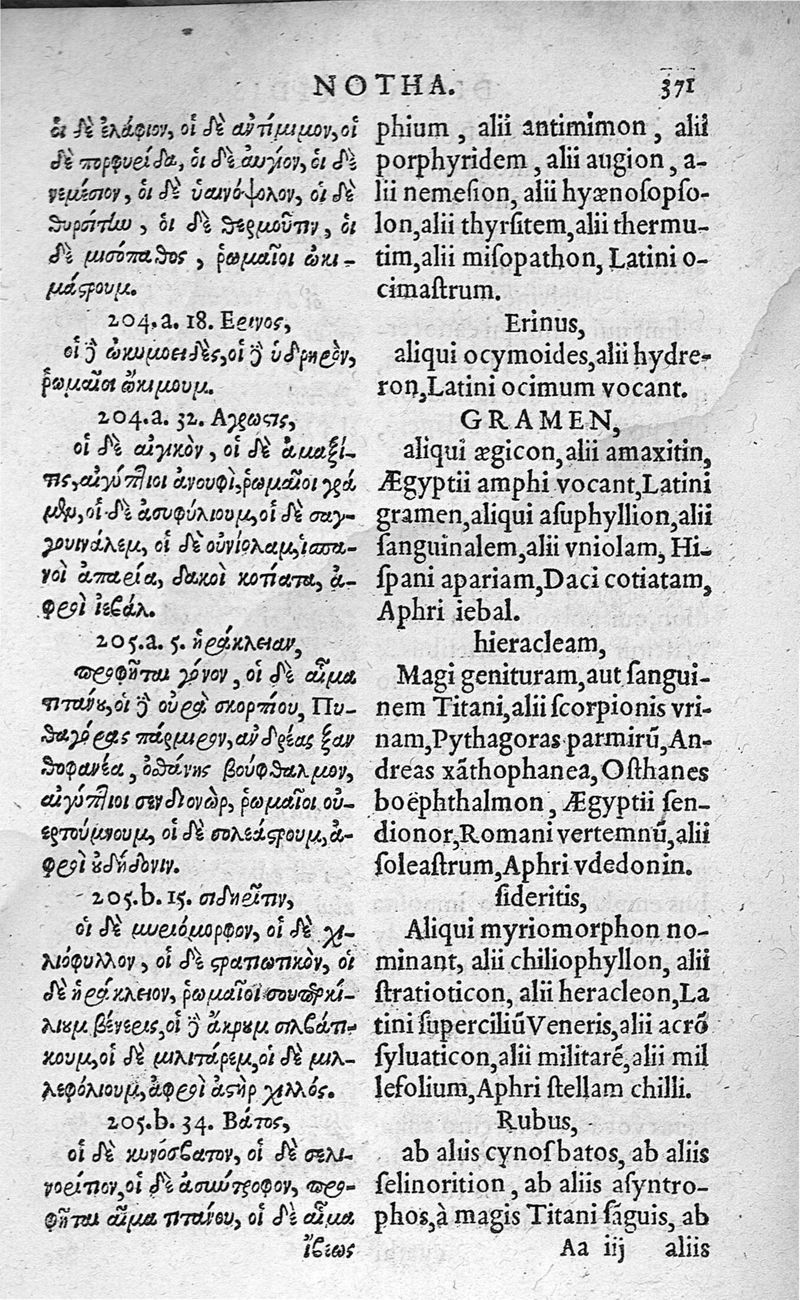 NOTHA. 371
οἱ δὲ ἐλάφιον, οἱ δὲ ἀντίμιμον, οἱ
δὲ πορφυρίδα, οἱ δὲ αὔγιον, οἱ δὲ
νεμέσιον, οἱ δὲ ὑαινόψολον, οἱ δὲ
θυρσίτίω, οἱ δὲ θερμοῦτιν, οἱ
δὲ μισόπαθος, ῥωμαῖοι ὠκι-
μάςρουμ.
204.a. 18. Ερινος,
οἱ δὲ ὠκυμοειδὲς, οἱ δὲ ὑδρηρὸν,
ῥωμαῖοι ὤκιμουμ.
204.a. 32. Αγρωςις,
οἱ δὲ αἰγικὸν, οἱ δὲ ἀμαξί-
τις, αἰγύπτιοι ἀνουφὶ, ῥωμαῖοι γρά
μθυ, οἱ δὲ ἀσυφύλιουμ, οἱ δὲ σαγ-
γουινάλεμ, οἱ δὲ οὐνίολαμ, ἱσπα-
νοὶ ἀπαρία, δακοὶ κοτίατα, ἀ-
φροὶ ἰεβάλ.
205.a. 5. ἡράκλειαν,
προφῆται γόνον, οἱ δὲ αἷμα
τιτάνου, οἱ δὲ οὐρὰ σκορπίου, Πυ-
θαγόρας πάρμιρον, ἀνδρέας ξαν
θοφανέα, ὀθάνης βούφθαλμον,
αἰγύπτιοι σενδιονὼρ, ῥωμαῖοι οὐ-
ερτούμνουμ, οἱ δὲ σολεάςρουμ, ἀ-
φροὶ ουδηδονιν.
205.b. 15. σιδηρῖτιν,
οἱ δὲ μυριόμορφον, οἱ δὲ χι-
λιόφυλλον, οἱ δὲ ςρατιωτικὸν, οἱ
δὲ ἡράκλειον, ῥωμαῖοι σουπερκί-
λιουμ βένερις, οἱ δὲ ἄκρουμ σιλβάτι-
κουμ, οἱ δὲ μιλιτάρεμ, οἱ δὲ μιλ-
λεφόλιουμ, ἀφροὶ ἀςὴρ χιλλός.
205.b. 34. Βάτος,
οἱ δὲ κυνόσβατον, οἱ δὲ σελι-
νορίτιον, οἱ δὲ ἀσιώτροφον, προ-
φῆται αἷμα τιτάνου, οἱ δὲ αἷμα
ἴβεως
phium, alii antimimon, alii
porphyridem, alii augion, a-
lii nemesion, alii hyænosopso-
lon, alii thyrsitem, alii thermu-
tim, alii misopathon, Latini o-
cimastrum.
Erinus,
aliqui ocymoides, alii hydre-
ron, Latini ocimum vocant.
GRAMEN,
aliqui ægicon, alii amaxitin,
Ægyptii amphi vocant, Latini
gramen, aliqui asuphyllion, alii
sanguinalem, alii vniolam, Hi-
spani apariam, Daci cotiatam,
Aphri iebal.
hieracleam,
Magi genituram, aut sangui-
nem Titani, alii scorpionis vri-
nam, Pythagoras parmirū, An-
dreas xāthophanea, Osthanes
boëphthalmon, Ægyptii sen-
dionor, Romani vertemnū, alii
soleastrum, Aphri vdedonin.
sideritis,
Aliqui myriomorphon no-
minant, alii chiliophyllon, alii
stratioticon, alii heracleon, La
tini superciliū Veneris, alii acrō
syluaticon, alii militarē, alii mil
lefolium, Aphri stellam chilli.
Rubus,
ab aliis cynosbatos, ab aliis
selinorition, ab aliis asyntro-
phos, à magis Titani sāguis, ab
Aa iij aliis